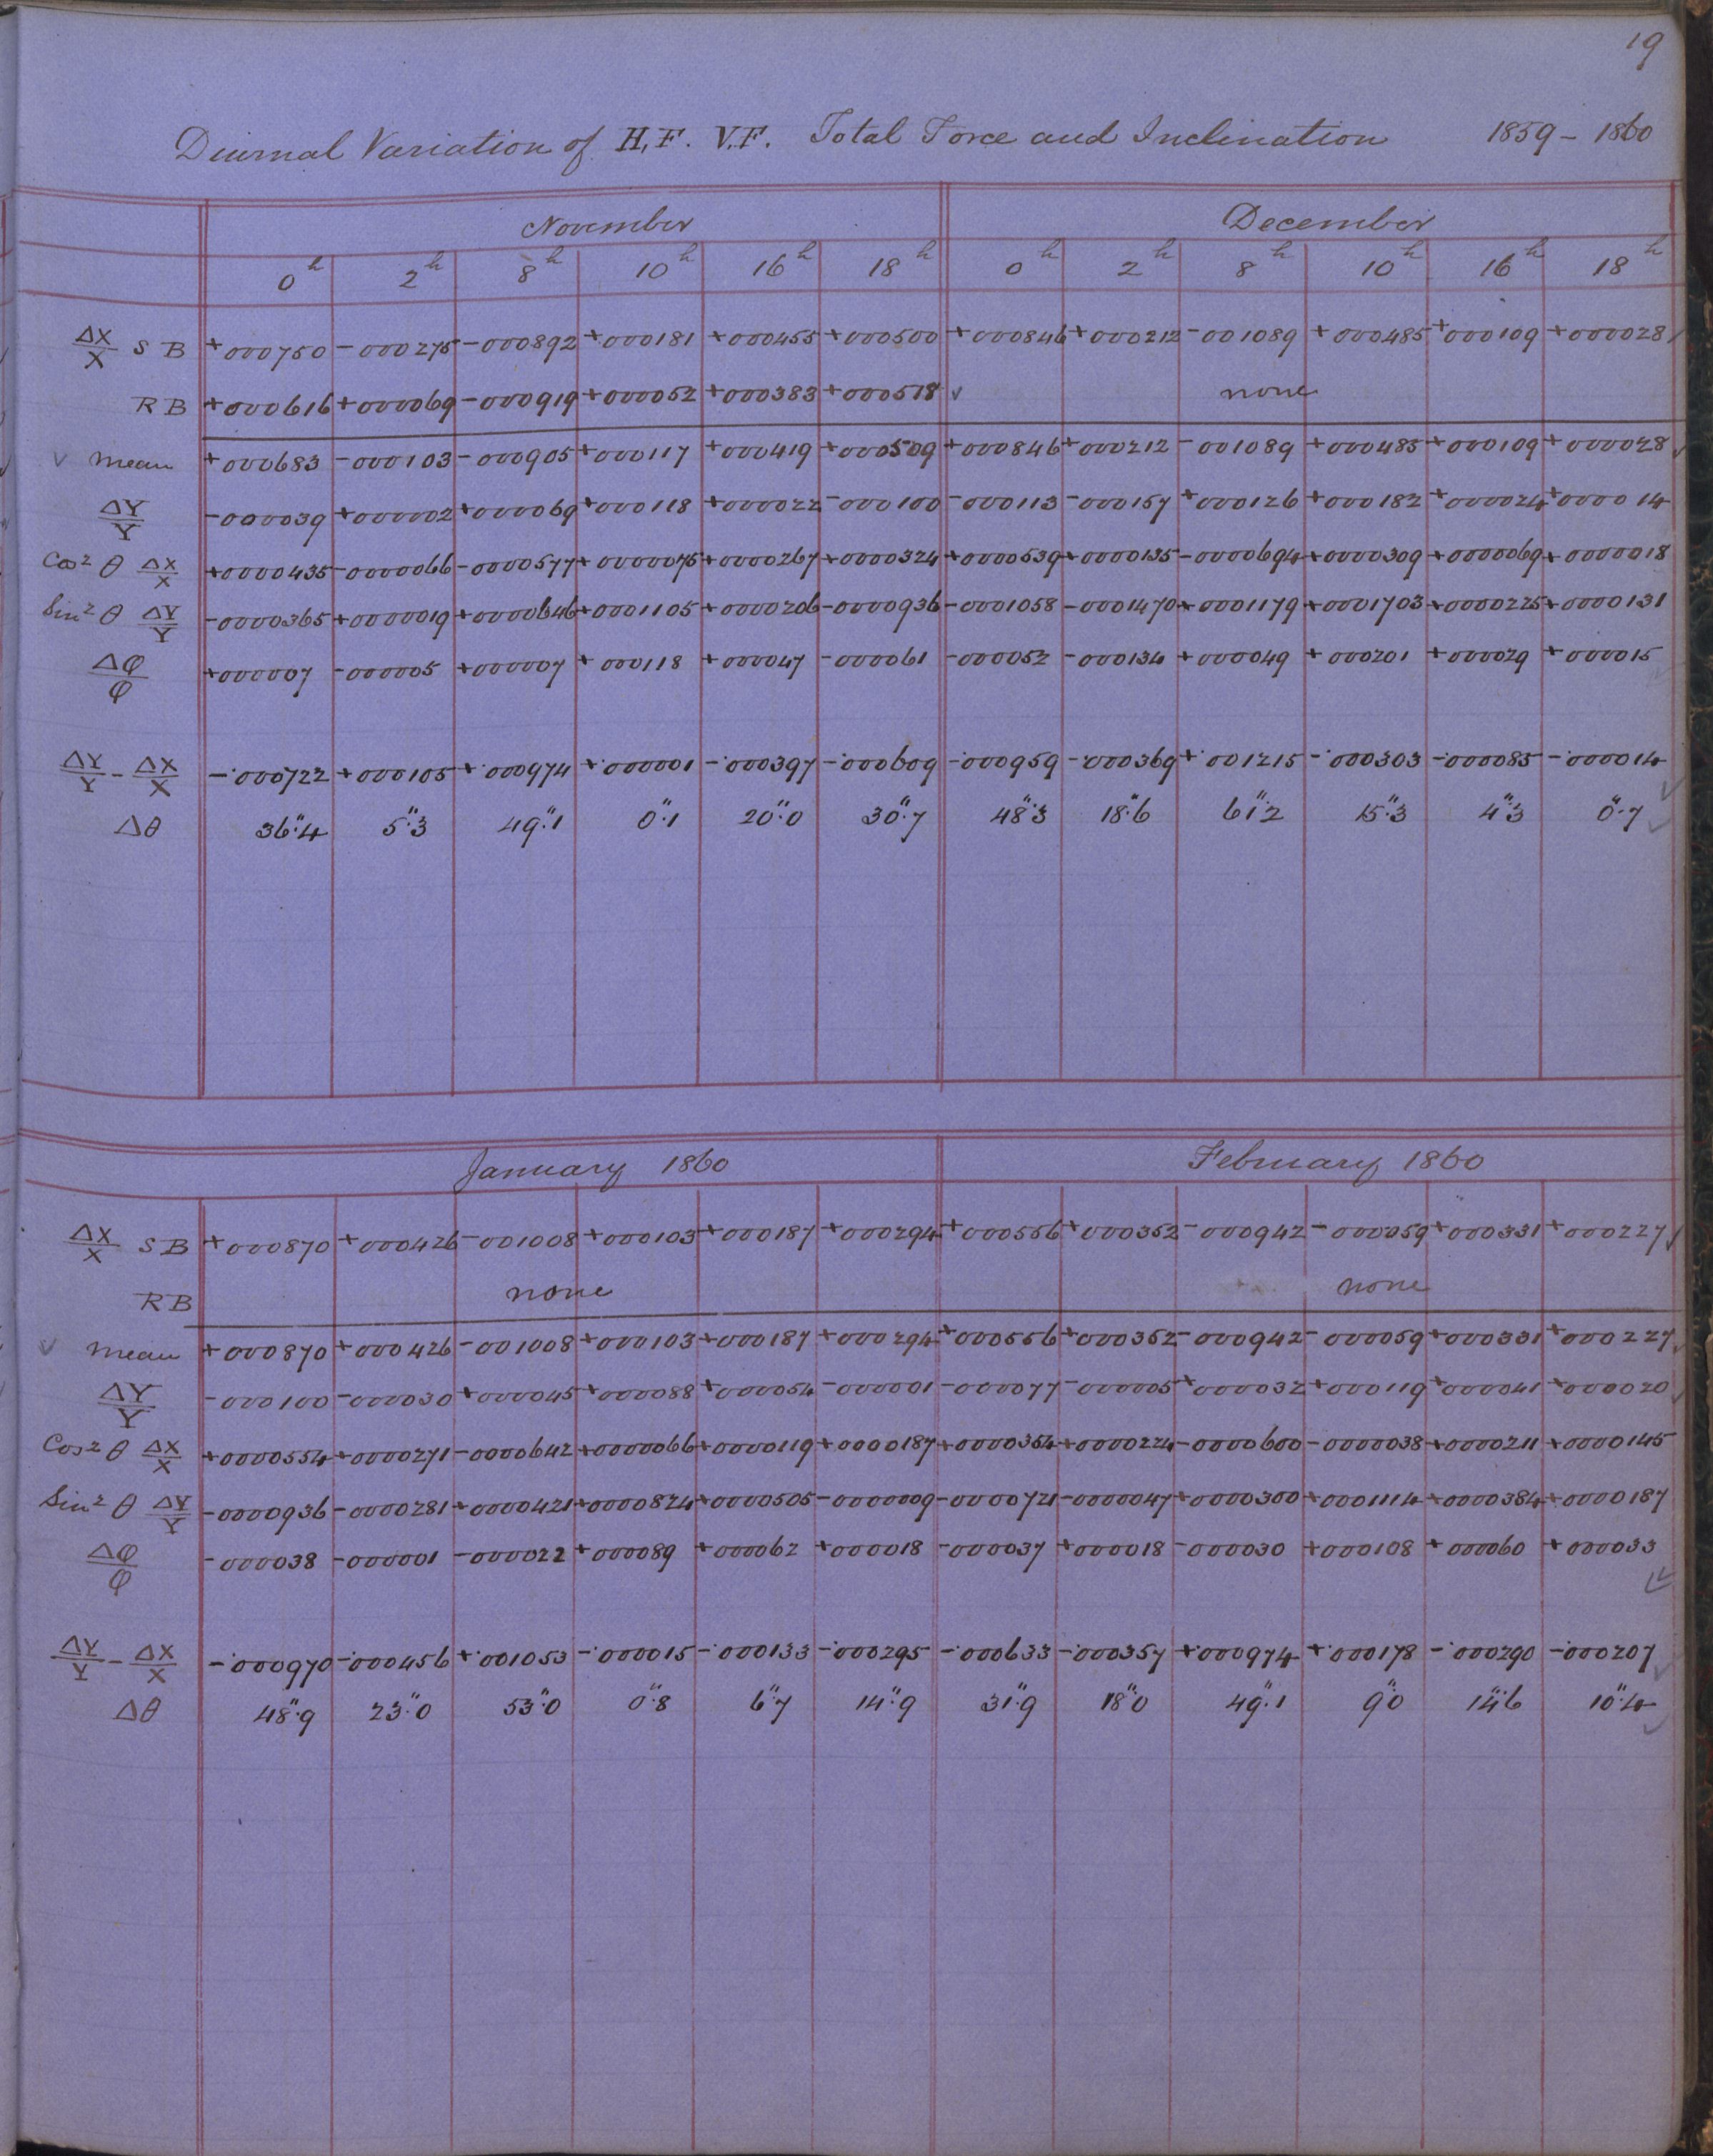 19
Diurnal Variation of H.F. V.F. Total Force and Inclination 1859 - 1860
November December
0h 2h 8h 10h 16h 18h 0h 2h 8h 10h 16h 18h
ΔX/X S B +000750 -000275 -000892 +000181 +000455 +000500 +000846 +000212 -001089 +000485 +000109 +000028
R B +000616 +000069 -000919 +000052 +000383 +000518 ✓ none
✓ mean +000683 -000103 -000905 +000117 +000419 +000509 +000846 +000212 -001089 +000485 +000109 +000028 ✓
ΔY/Y -000039 +000002 +000069 +000118 +000022 -000100 -000113 -000157 +000126 +000182 +000024 +000014
Cos² θ ΔX/X +0000435 -0000066 -0000577 +0000075 +0000267 +0000324 +0000539 +0000135 -0000694 +0000309 +0000069 +0000018
Sin² θ ΔY/Y -0000365 +0000019 +0000646 +0001105 +0000206 -0000936 -0001058 -0001470 +0001179 +0001703 +0000225 +0000131
Δφ/φ +000007 -000005 +000007 +000118 +000047 -000061 -000052 -000134 +000049 +000201 +000029 +000015
ΔY/Y - ΔX/X -·000722 +000105 +·000974 +·000001 -·000397 -·000609 -·000959 -·000369 +·001215 -·000303 -·000085 -·000014
Δθ 36".4 5".3 49".1 0".1 20".0 30".7 48".3 18".6 61".2 15".3 4".3 0".7 ✓
January 1860 February 1860
ΔX/X S B +000870 +000426 -001008 +000103 +000187 +000294 +000556 +000352 -000942 -000059 +000331 +000227
R B none none
✓ mean +000870 +000426 -001008 +000103 +000187 +000294 +000556 +000352 -000942 -000059 +000331 +000227 ✓
ΔY/Y -000100 -000030 +000045 +000088 +000054 -000001 -000077 -000005 +000032 +000119 +000041 +000020 ✓
Cos² θ ΔX/X +0000554 +0000271 -0000642 +0000066 +0000119 +0000187 +0000354 +0000224 -0000600 -0000038 +0000211 +0000145
Sin² θ ΔY/Y -0000936 -0000281 +0000421 +0000824 +0000505 -0000009 -0000721 -0000047 +0000300 +0001114 +0000384 +0000187
Δφ/φ -000038 -000001 -000022 +000089 +000062 +000018 -000037 +000018 -000030 +000108 +000060 +000033 ✓
ΔY/Y - ΔX/X -·000970 -·000456 +·001053 -·000015 -·000133 -·000295 -·000633 -·000357 +·000974 +·000178 -·000290 -·000207 ✓
Δθ 48".9 23".0 53".0 0".8 6".7 14".9 31".9 18".0 49".1 9".0 14".6 10".4 ✓